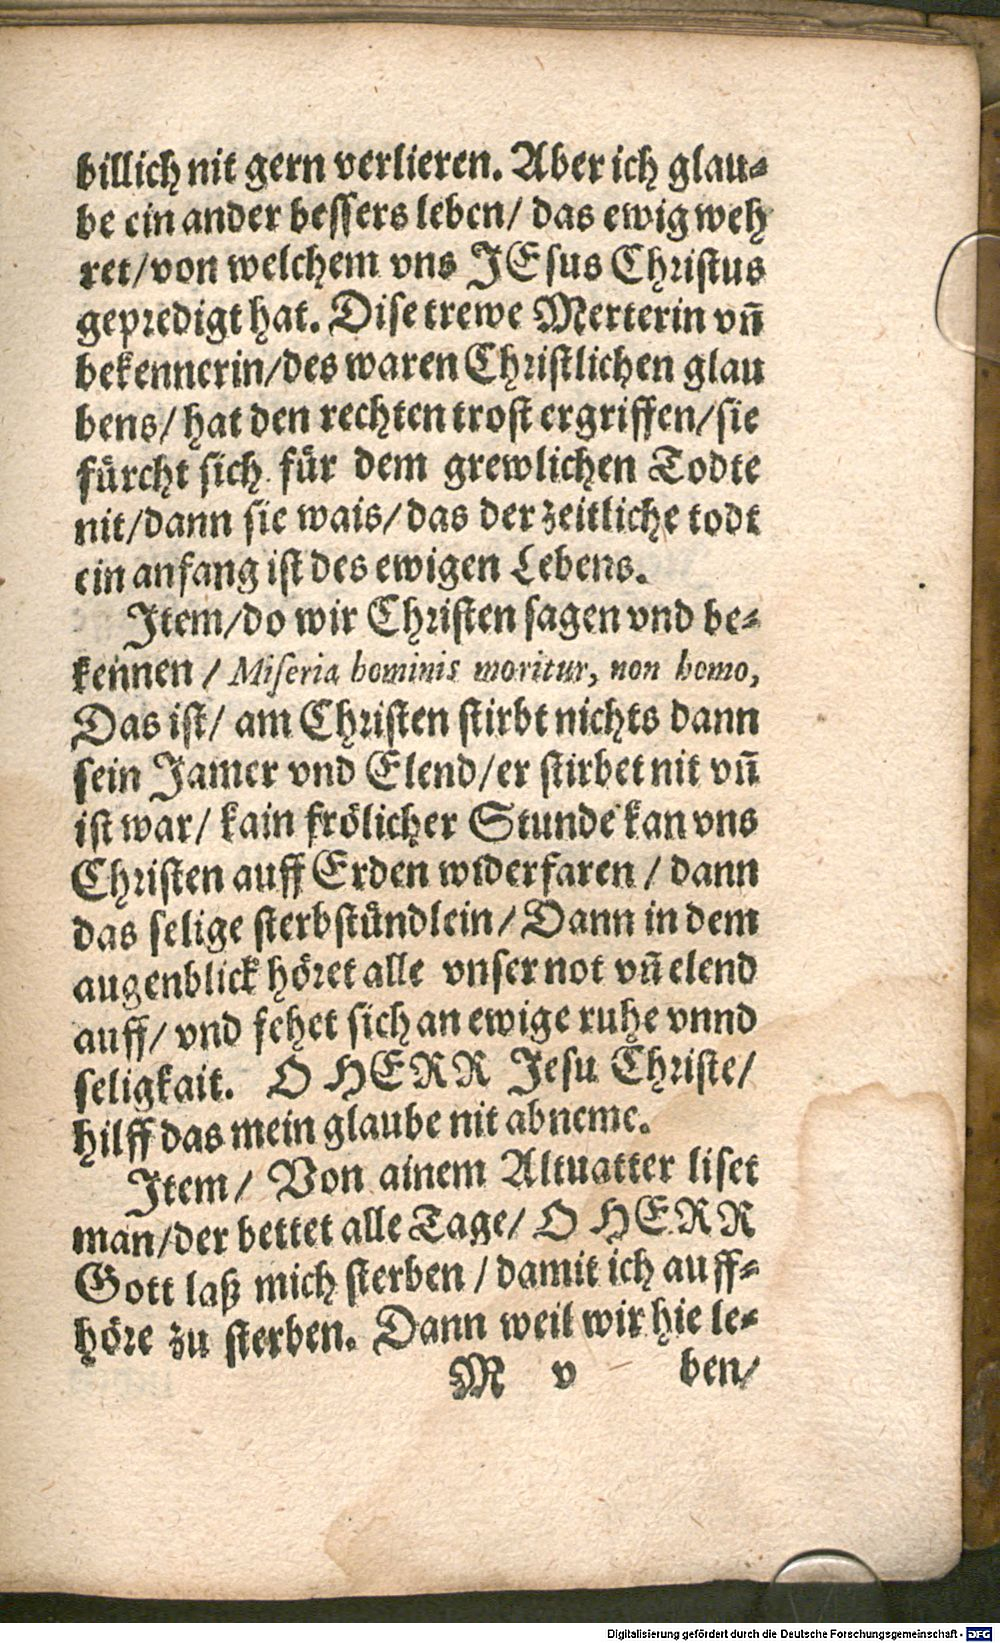 billich nit gern verlieren. Aber ich glau⸗
be ein ander bessers leben/ das ewig weh
ret/von welchem vns JEsus Christus
gepredigt hat. Dise trewe Merterin vñ
bekennerin/des waren Christlichen glau
bens/ hat den rechten trost ergriffen/sie
fürcht sich für dem grewlichen Todte
nit/dann sie wais/das der zeitliche todt
ein anfang ist des ewigen Lebens.
Item/do wir Christen sagen vnd be⸗
kennen / Miseria hominis moritur, non homo,
Das ist/ am Christen stirbt nichts dann
sein Jamer vnd Elend/er stirbet nit vñ
ist war/ kain frölicher Stunde kan vns
Christen auff Erden widerfaren / dann
das selige sterbstündlein/ Dann in dem
augenblick höret alle vnser not vñ elend
auff/ vnd fehet sich an ewige ruhe vnnd
seligkait. O HERR Jesu Christe/
hilff das mein glaube nit abneme.
Item/ Von ainem Altuatter liset
man/der bettet alle Tage/ O HERR
Gott laß mich sterben / damit ich auff⸗
höre zu sterben. Dann weil wir hie le⸗
M v ben/
Digitalisierung gefördert durch die Deutsche Forschungsgemeinschaft - DFG